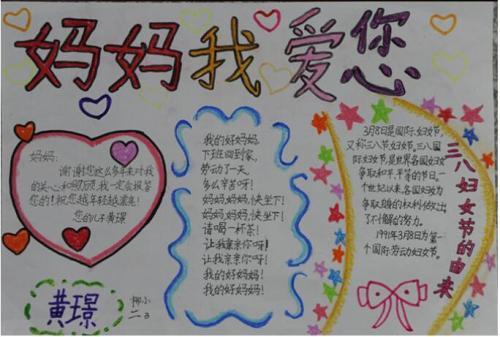 妈妈我爱您
妈妈:
谢谢您这么多年来对我
的关心和照顾,我一定会报答
您的!祝您越年轻越漂亮!
您的儿子黄璟
黄璟
柳小
二3
我的好妈妈,
下班回到家,
劳动了一天,
多么辛苦呀!
妈妈,妈妈,快坐下!
妈妈,妈妈,快坐下!
请喝一杯茶!
让我亲亲你呀!
让我亲亲你呀!
我的好妈妈!
我的好妈妈!
3月8日是国际妇女节,
又称三八节妇女节,三八国
际妇女节,是世界各国妇女
争取和平,平等的节日,一
个世纪以来,各国妇女为
争取自身的权利做出
了不懈的努力。
1991年3月8日为第一
个国际劳动妇女节。
三八妇女节的由来